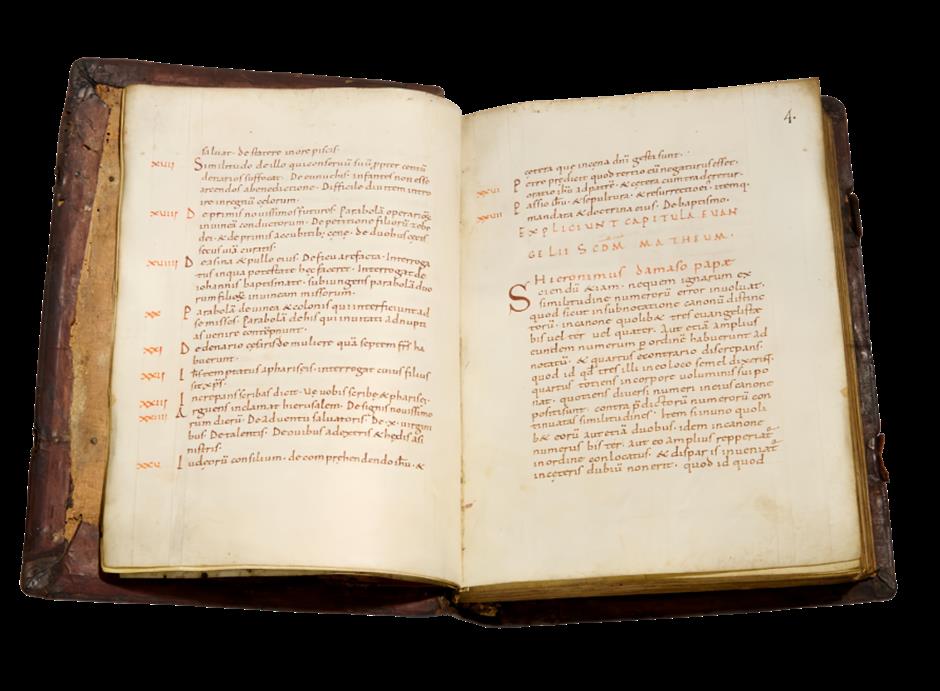 saluat. de statere inore piscis.
XVII Similitudo deillo qui conseruū suū ppter centū
denarios suffocat. De eunuchis. infantes non esse
arcendos abenedictione. Difficile diuitem intro
ire inregnū cęlorum.
XVIII De primis nouissimos futuros. Parabolā operariorū
inuineā conductorum. De petitione filiorū zebe
dei. & de primis accubitib; cęnę. de duobus cęcis
secus uiā curatis.
XVIIII De asina & pullo eius. De ficu arefacta. Interroga
tus inqua potestate hęc faceret. Interrogat de
iohannis baptismate. subiungens parabolā duo
rum filiorū in uineam missorum.
XX Parabolā de uinea & colonis qui interficiunt ad
se missos. Parabolā dehis qui inuitati ad nupta
as uenire contēpnunt.
XXI De denario cęsaris. de muliere quā septem frs̄ ha
buerunt.
XXII Ihs̄ temptatus apharisęis. interrogat cuius filius
sit xp̄s.
XXIII Increpans scribas dicit. Uę uobis scribę & pharisęi.
XXIIII Arguens inclamat hierusalem. De signis nouissimo
rum dierū. De aduentu saluatoris. De X. uirgini
bus. De talentis. De ouibus adextris & hędis asi
nistris.
XXV Iudęorū consilium. de comprehendendo ihū. &
4.
cętera que incena dnī gesta sunt.
XXVI Petro predicit quod tertio eū negaturus esset.
oratio ihū ad patrē. & cętera cum traderetur.
XXVII Passio ihū. & sepultura. & resurrectio ei. itemq.
mandata & doctrina eius. De baptismo.
EXPLICIUNT CAPITULA EUAN
GELII SCDM MATHEUM.
HIERONIMUS DAMASO PAPAE
Sciendū &iam. nequem ignarum ex
similitudine numerorū error inuoluat.
quod sicut insubnotatione canonū distinc
torū. incanone qualib& tres euangelistę
bis uel ter uel quater. Aut etiā amplius
eundem numerum p ordinē habuerunt ad
notatū. & quartus econtrario discrepans.
quod id qd tres illi in eo loco semel dixerunt.
quartus totiens in corpore uoluminis sui po
nat. quotiens diuersi numeri in eius canone
positi sunt. contra p̄dictorū numerorū con
tinuatas similitudines. Item si in uno quoli
b& eorū aut etiā duobus. idem incanone
numerus bis ter. aut eo amplius reppertat̄
in ordine conlocatus. & dispar is inueniat̄
in ceteris dubiū non erit. quod id quod